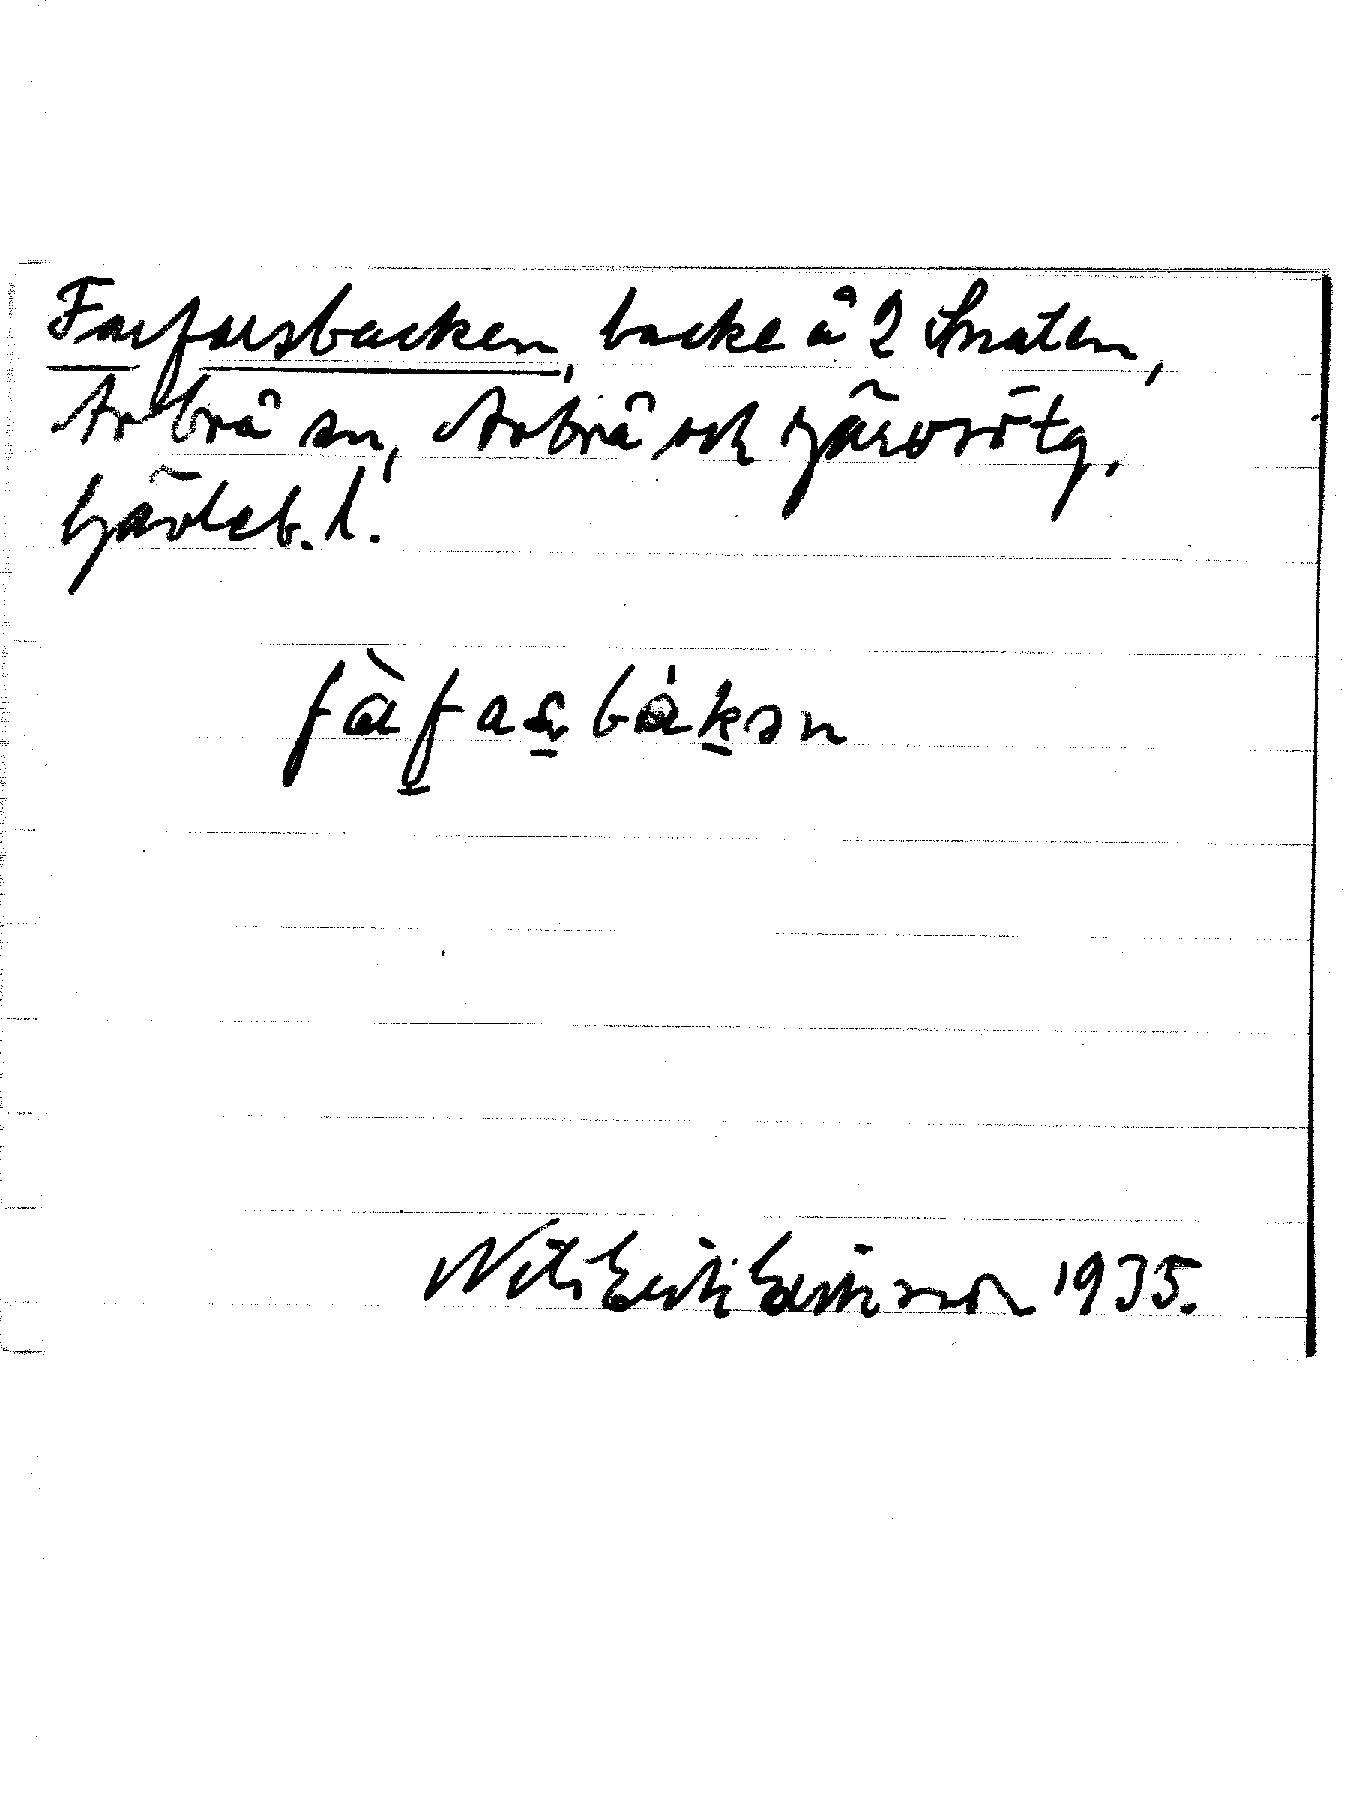 Farfarsbacken, backe å 2 Snaten,
Arbrå sn, Arbrå och Järvsö tg,
Gävleb. l.
Nils Erik Eriksson 1935.